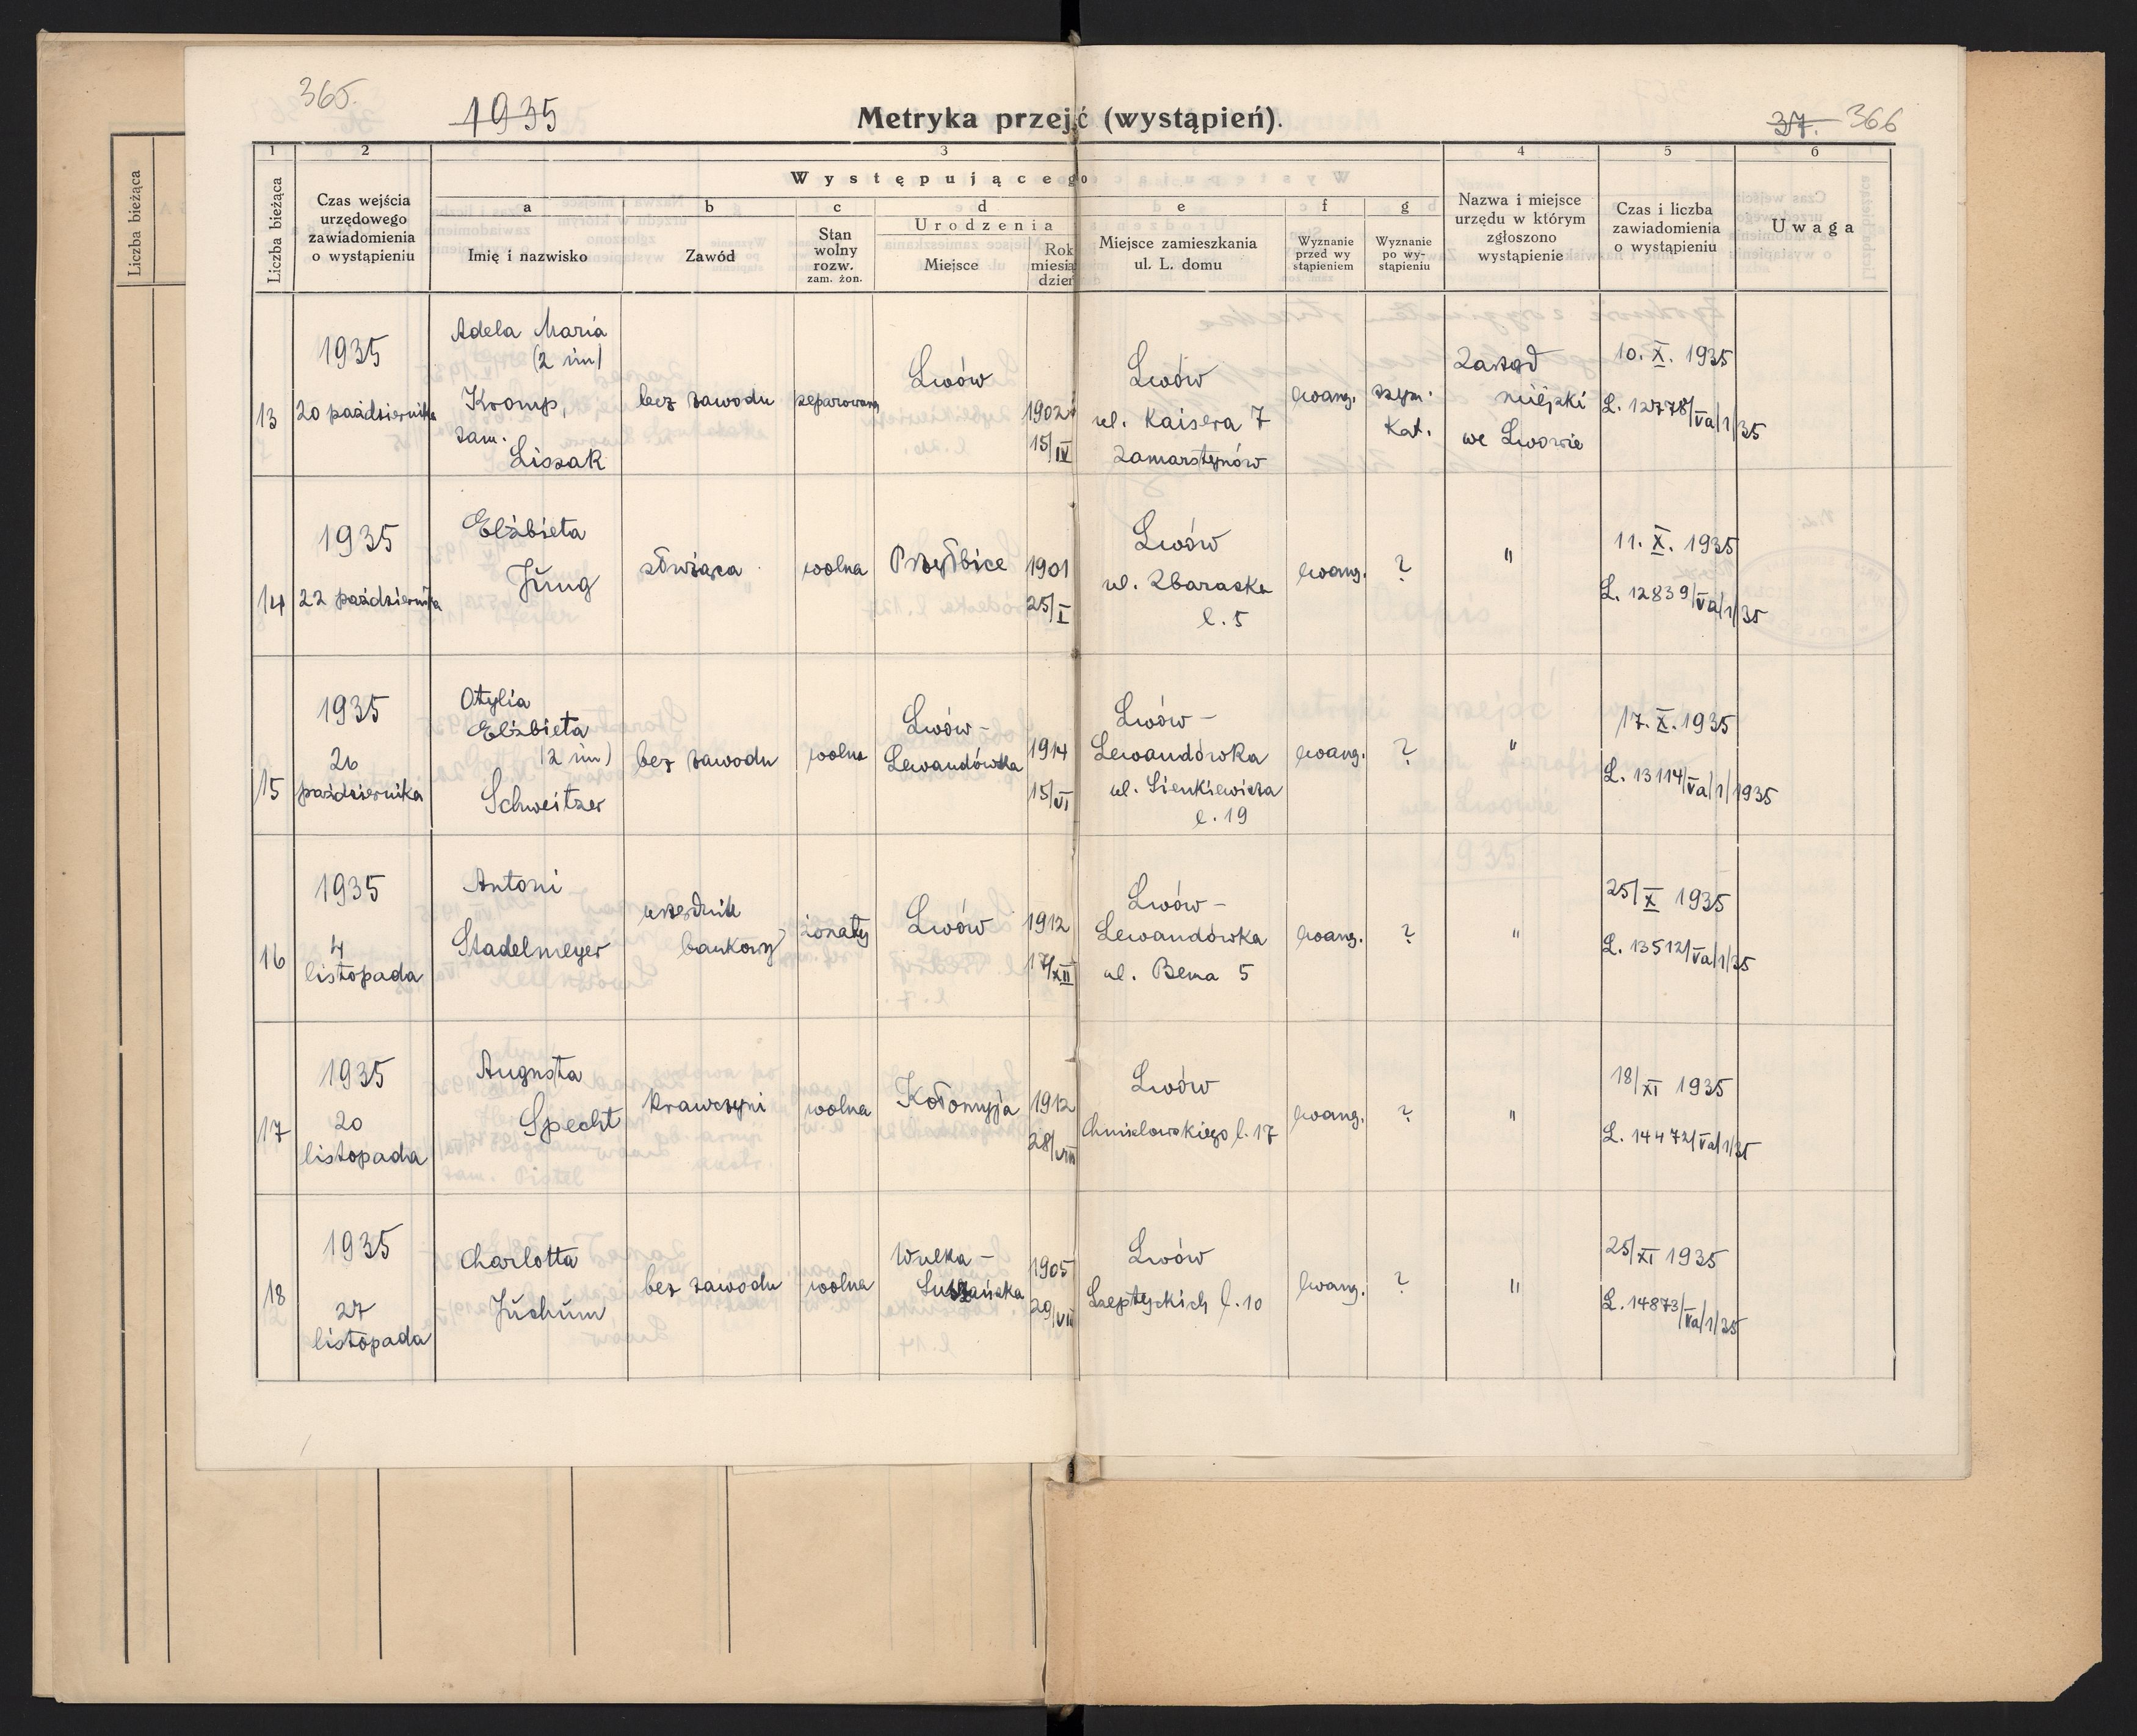 365.
1935
Metryka przejść (wystąpień).
37. 366
Liczba bieżąca
1 2 3 4 5 6
Liczba bieżąca
Czas wejścia
urzędowego
zawiadomienia
o wystąpieniu
Występującego
a b c d e f g
Imię i nazwisko
Zawód
Stan
wolny
rozw.
zam. żon.
Urodzenia
Miejsce
Rok
miesią
dzień
Miejsce zamieszkania
ul. L. domu
Wyznanie
przed wy
stąpieniem
Wyznanie
po wy-
stąpieniu
Nazwa i miejsce
urzędu w którym
zgłoszono
wystąpienie
Czas i liczba
zawiadomienia
o wystąpieniu
Uwaga
13
1935
20 października
Adela Maria
(2 im)
Kromp,
zam.
Lissak
bez zawodu
separowana
Lwów
1902
15/IV
Lwów
ul. Kaisera 7
Zamarstynów
ewang.
rzym.
Kat.
Zarząd
miejski
we Lwowie
10. X. 1935
L. 12778/Va/1/35
14
1935
22 października
Elżbieta
Jung
służąca
wolna
Przyłbice
1901
25/I
Lwów
ul. Zbaraska
l. 5
ewang.
?
"
11. X. 1935
L. 12839/Va/1/35
15
1935
26
października
Otylia
Elżbieta
(2 im)
Schweitzer
bez zawodu
wolna
Lwów -
Lewandówka
1914
15/VI
Lwów -
Lewandówka
ul. Sienkiewicza
l. 19
ewang.
?
"
17. X. 1935
L. 13114/Va/1/1935
16
1935
4
listopada
Antoni
Stadelmeyer
urzędnik
bankowy
żonaty
Lwów
1912
17/XII
Lwów -
Lewandówka
ul. Bema 5
ewang.
?
"
25/X 1935
L. 13512/Va/1/35
17
1935
20
listopada
Augusta
Specht
krawczyni
wolna
Kołomyja
1912
28/VIII
Lwów
Chmielowskiego l. 17
ewang.
?
"
18/XI 1935
L. 14472/Va/1/35
18
1935
27
listopada
Charlotta
Juchum
bez zawodu
wolna
Wulka -
1905
29/VII
Lwów
Szeptyckich l. 10
ewang.
?
"
25/XI 1935
L. 14873/Va/1/35